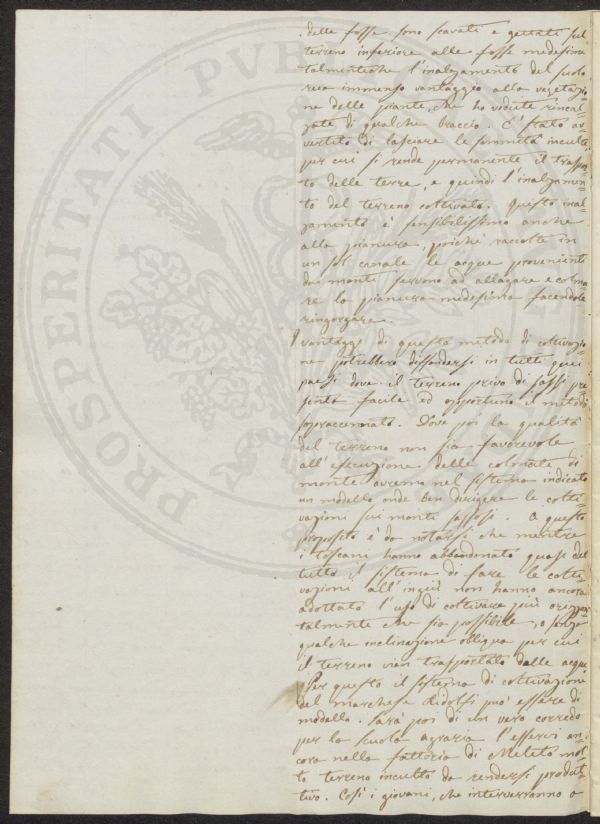 delle fosse sono scavati e gettati sul
terreno inferiore alle fosse medesime
talmenteche l'inalzamento del suolo
reca immenso vantaggio alla vegetazio=
ne delle piante, che ho vedute rincal=
zate di qualche braccio. E' stato av=
vertito di lasciare le sommità incolte
per cui si rende permanente il traspor=
to delle terre, e quindi l'inalzamen=
to del terreno coltivato. Questo inal=
zamento è sensibilissimo anche
alla pianura, poiché raccolte in
un sol canale le acque provenienti
dai monti servono ad allagare e colma=
re la pianura medesima facendole
ringorgare.
I vantaggi di questo metodo di coltivazio=
ne potrebbero diffondersi in tutti quei
paesi dove il terreno privo di sassi pre=
senta facile ed opportuno il metodo
sopraccennato. Dove poi la qualità
del terreno non sia favorevole
all'esecuzione delle colmate di
monte avremo nel sistema indicato
un modello onde ben dirigere le colti=
vazioni sui monti sassosi. A questo
proposito è da notarsi che mentre
i toscani hanno abbandonato quasi del
tutto il sistema di fare le colti=
vazioni all'ingiù non hanno ancora
adottato l'uso di coltivare più orizzon=
talmente che sia possibile, o senza
qualche inclinazione obliqua per cui
il terreno vien trasportato dalle acque
Per questo il sistema di coltivazione
del marchese Ridolfi può essere di
modello. Sarà poi di un vero corredo
per la scuola agraria l'esservi an=
cora nella fattoria di Meleto mol=
to terreno incolto da rendersi produt=
tivo. Così i giovani, che interverranno a
PROSPERITATI PVBLICAE